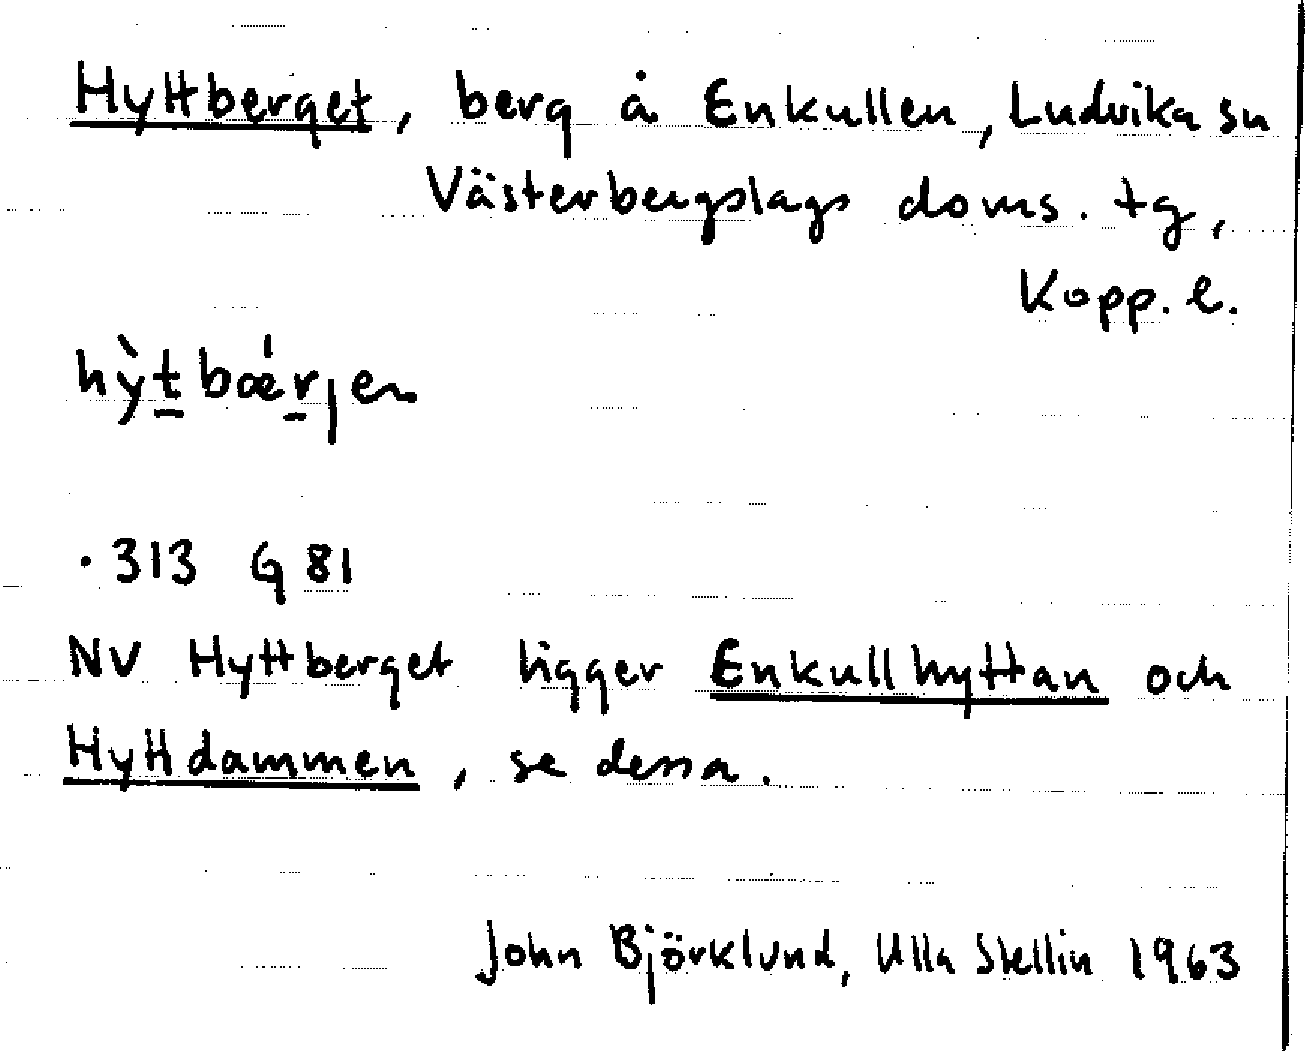 Hyttberget, berg å Enkullen, Ludvika sn
Västerbergslags doms. tg,
Kopp. l.
hỳt̲bǽr̲jen
·313 G 81
NV Hyttberget ligger Enkullhyttan och
Hyttdammen, se dessa.
John Björklund, Ulla Stellin 1963